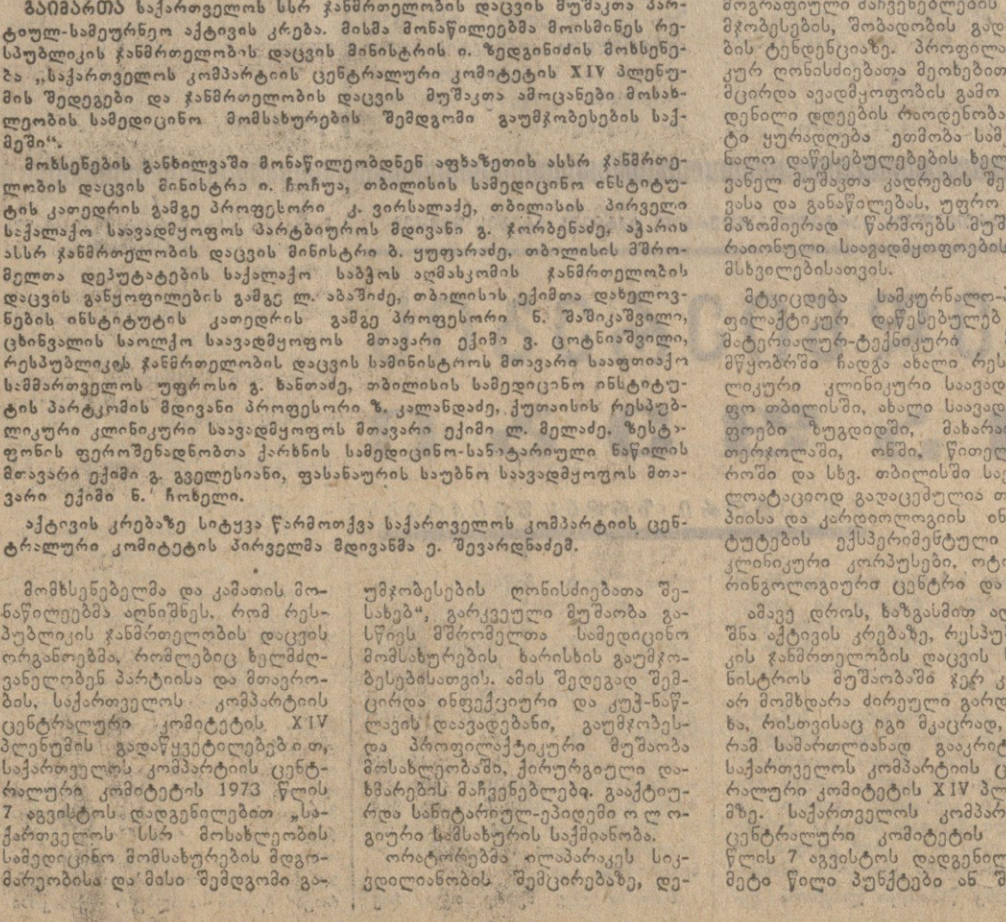 გაიმართა საქართველოს სსრ ჯანმრთელობის დაცვის მუშაკთა პარ-
ტიულ-სამეურნეო აქტივის კრება. მისმა მონაწილეებმა მოისმინეს რე-
სპუბლიკის ჯანმრთელობის დაცვის მინისტრის ი. ზედგინიძის მოხსენე-
ბა „საქართველოს კომპარტიის ცენტრალური კომიტეტის XIV პლენუ-
მის შედეგები და ჯანმრთელობის დაცვის მუშაკთა ამოცანები მოსახ-
ლეობის სამედიცინო მომსახურების შემდგომი გაუმჯობესების საქ-
მეში“.
მოხსენების განხილვაში მონაწილეობდნენ აფხაზეთის ასსრ ჯანმრთე-
ლობის დაცვის მინისტრი ი. ჩოჩუა, თბილისის სამედიცინო ინსტიტუ-
ტის კათედრის გამგე პროფესორი კ. ვირსალაძე, თბილისის პირველი
საქალაქო საავადმყოფოს პარტბიუროს მდივანი გ. ჯორბენაძე, აჭარის
ასსრ ჯანმრთელობის დაცვის მინისტრი ბ. ყუფარაძე, თბილისის მშრო-
მელთა დეპუტატების საქალაქო საბჭოს აღმასკომის ჯანმრთელობის
დაცვის განყოფილების გამგე ლ. აბაშიძე, თბილისის ექიმთა დახელოვ-
ნების ინსტიტუტის კათედრის გამგე პროფესორი ნ. შაშიკაშვილი,
ცხინვალის საოლქო საავადმყოფოს მთავარი ექიმი ვ. ცოტნიაშვილი,
რესპუბლიკის ჯანმრთელობის დაცვის სამინისტროს მთავარი სააფთიაქო
სამმართველოს უფროსი გ. ხანთაძე, თბილისის სამედიცინო ინსტიტუ-
ტის პარტკომის მდივანი პროფესორი ზ. კალანდაძე, ქუთაისის რესპუბ-
ლიკური კლინიკური საავადმყოფოს მთავარი ექიმი ლ. მელაძე, ზესტა-
ფონის ფეროშენადნობთა ქარხნის სამედიცინო-სანიტარიული ნაწილის
მთავარი ექიმი გ. გველესიანი, ფასანაურის საუბნო საავადმყოფოს მთა-
ვარი ექიმი ნ. ჩოხელი.
აქტივის კრებაზე სიტყვა წარმოთქვა საქართველოს კომპარტიის ცენ-
ტრალური კომიტეტის პირველმა მდივანმა ე. შევარდნაძემ.
მომხსენებელმა და კამათის მო-
ნაწილეებმა აღნიშნეს, რომ რეს-
პუბლიკის ჯანმრთელობის დაცვის
ორგანოებმა, რომლებიც ხელმძღ-
ვანელობენ პარტიისა და მთავრო-
ბის, საქართველოს კომპარტიის
ცენტრალური კომიტეტის XIV
პლენუმის გადაწყვეტილებებით,
საქართველოს კომპარტიის ცენტ-
რალური კომიტეტის 1973 წლის
7 აგვისტოს დადგენილებით „სა-
ქართველოს სსრ მოსახლეობის
სამედიცინო მომსახურების მდგო-
მარეობისა და მისი შემდგომი გა-
უმჯობესების ღონისძიებათა შე-
სახებ“, გარკვეული მუშაობა გა-
სწიეს მშრომელთა სამედიცინო
მომსახურების ხარისხის გაუმჯო-
ბესებისათვის. ამის შედეგად შემ-
ცირდა ინფექციური და კუჭ-ნაწ-
ლავის დაავადებანი, გაუმჯობეს-
და პროფილაქტიკური მუშაობა
მოსახლეობაში, ქირურგიული და-
ხმარების მაჩვენებლები. გააქტიუ-
რდა სანიტარიულ-ეპიდემიოლო-
გიური სამსახურის საქმიანობა.
ორატორებმა ილაპარაკეს სიკ-
ვდილიანობის შემცირებაზე, დე-
მოგრაფიული მაჩვენებლების
მჯობესების, შობადობის გად
ბის ტენდენციაზე. პროფილ
კურ ღონისძიებათა მეოხებით
მცირდა ავადმყოფობის გამო
დენილი დღეების რაოდენობა
ტი ყურადღება ეთმობა სამ
ნალო დაწესებულებების ხელ
ვანელ მუშაკთა კადრების შე
ვასა და განაწილებას, უფრო
მაზომიერად წარმოებს მუშ
რაიონული საავადმყოფოების
მსხვილებისათვის.
მტკიცდება სამკურნალო
ფილაქტიკურ დაწესებულებ
მატერიალურ-ტექნიკური
მწყობრში ჩადგა ახალი რეს
ლიკური კლინიკური საავად
ფო თბილისში, ახალი საავად
ფოები ზუგდიდში, მახარა
თერჯოლაში, ონში, წითელ
როში და სხვ. თბილისში სა
ლოატაციოდ გადაცემულია თ
პიისა და კარდიოლოგიის ინ
ტუტების ექსპერიმენტული
კლინიკური კორპუსები, ოტო
რინგოლოგიური ცენტრი და
ამავე დროს, ხაზგასმით აღ
შნა აქტივის კრებაზე, რესპუ
კის ჯანმრთელობის დაცვის
ნისტროს მუშაობაში ჯერ კ
არ მომხდარა ძირეული გარდ
ხა, რისთვისაც იგი მკაცრად,
რამ სამართლიანად გააკრიტ
საქართველოს კომპარტიის ც
რალური კომიტეტის XIV პლ
მზე. საქართველოს კომპარ
ცენტრალური კომიტეტის
წლის 7 აგვისტოს დადგენილ
მეტი წილი პუნქტები ან შ